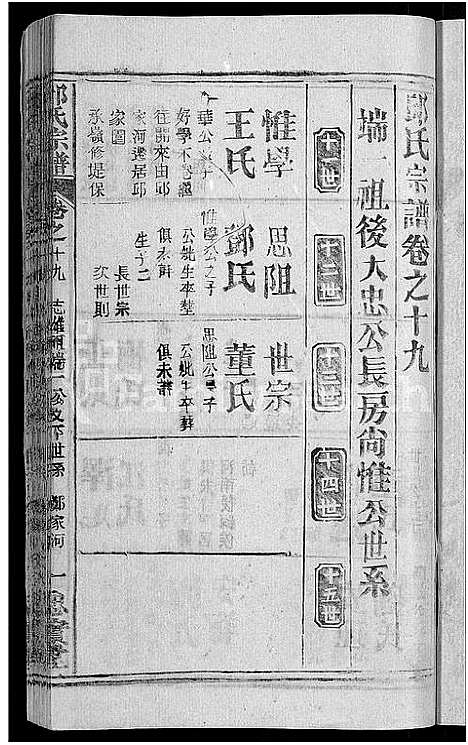 鄧氏宗譜卷之十九
瑞一祖後大忠公長房尚惟公世系
十一世
十二世
十三世
十四世
十五世
惟學
王氏
華公
好學不
往來由邱
家河遷居邱
家園
承嶺修堤保
思阻
鄧氏
惟學公之子
公妣生卒塟
俱未詳
生子二
長世宗
次世則
世宗
董氏
思阻公長子
公妣生卒葬
俱未詳
氏宗譜
卷之十九
祖瑞一公文下世系
鄧家河
一